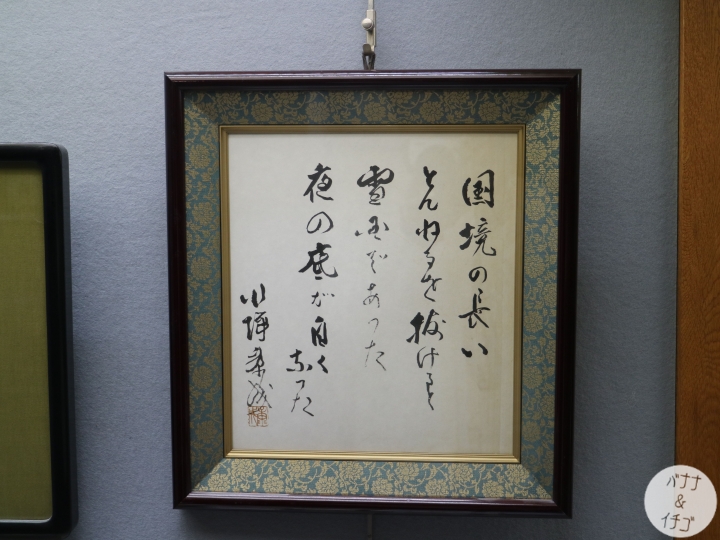 国境の長い
とんねるを抜けると
雪国であった
夜の底が白く
なった
川端康成
バナナ
&
イチゴ